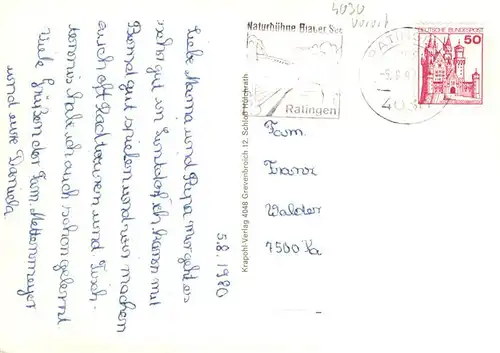 4030
Naturbühne Blauer See
Ratingen
RATINGEN
-5.8.
403
DEUTSCHE BUNDESPOST
50
5.8.1980
Liebe Mama und Papa mir geht es
sehr gut in Lintdorf ich kann mit
Bernd gut spielen und wir machen
auch oft Radtouren und Tisch-
tennis habe ich auch schon gelernt
Viele Grüßen der Fam. Mettenmeyer
und eure Daniela.
Krapohl-Verlag 4048 Grevenbroich 12, Schloß Hülchrath
Fam.
Franz
Walder
7500 Ka